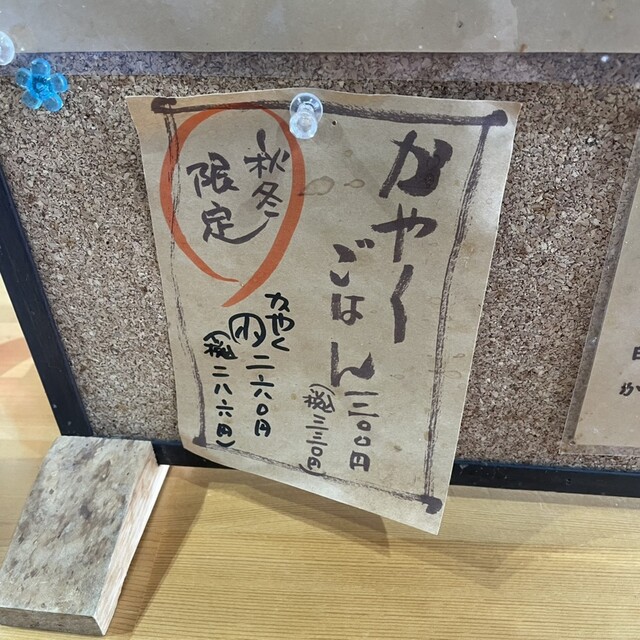 かやく
ごはん 三〇〇円
(税込 三三〇円)
秋冬
限定
かやく
二六〇円
(税込 二八六円)